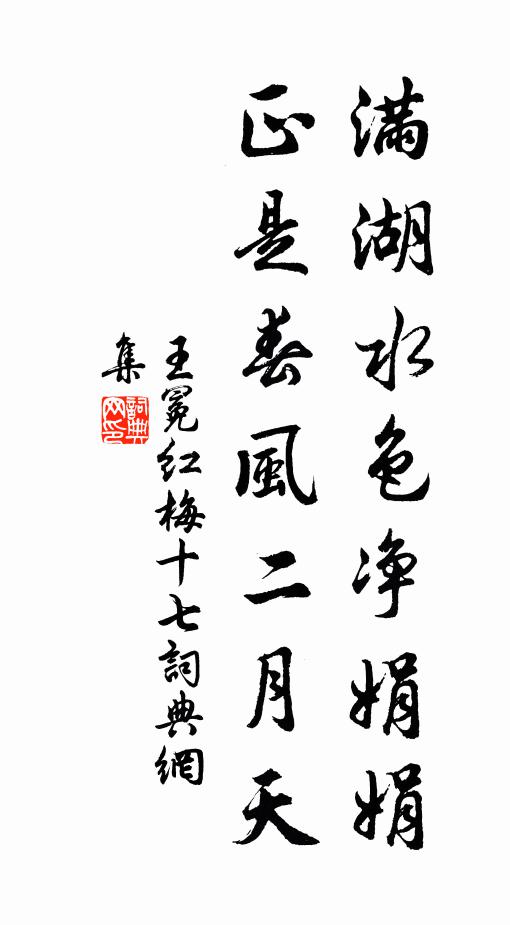 滿湖水色净娟娟
正是春風二月天
王冕紅梅十七詞典網
集
詞典
网印